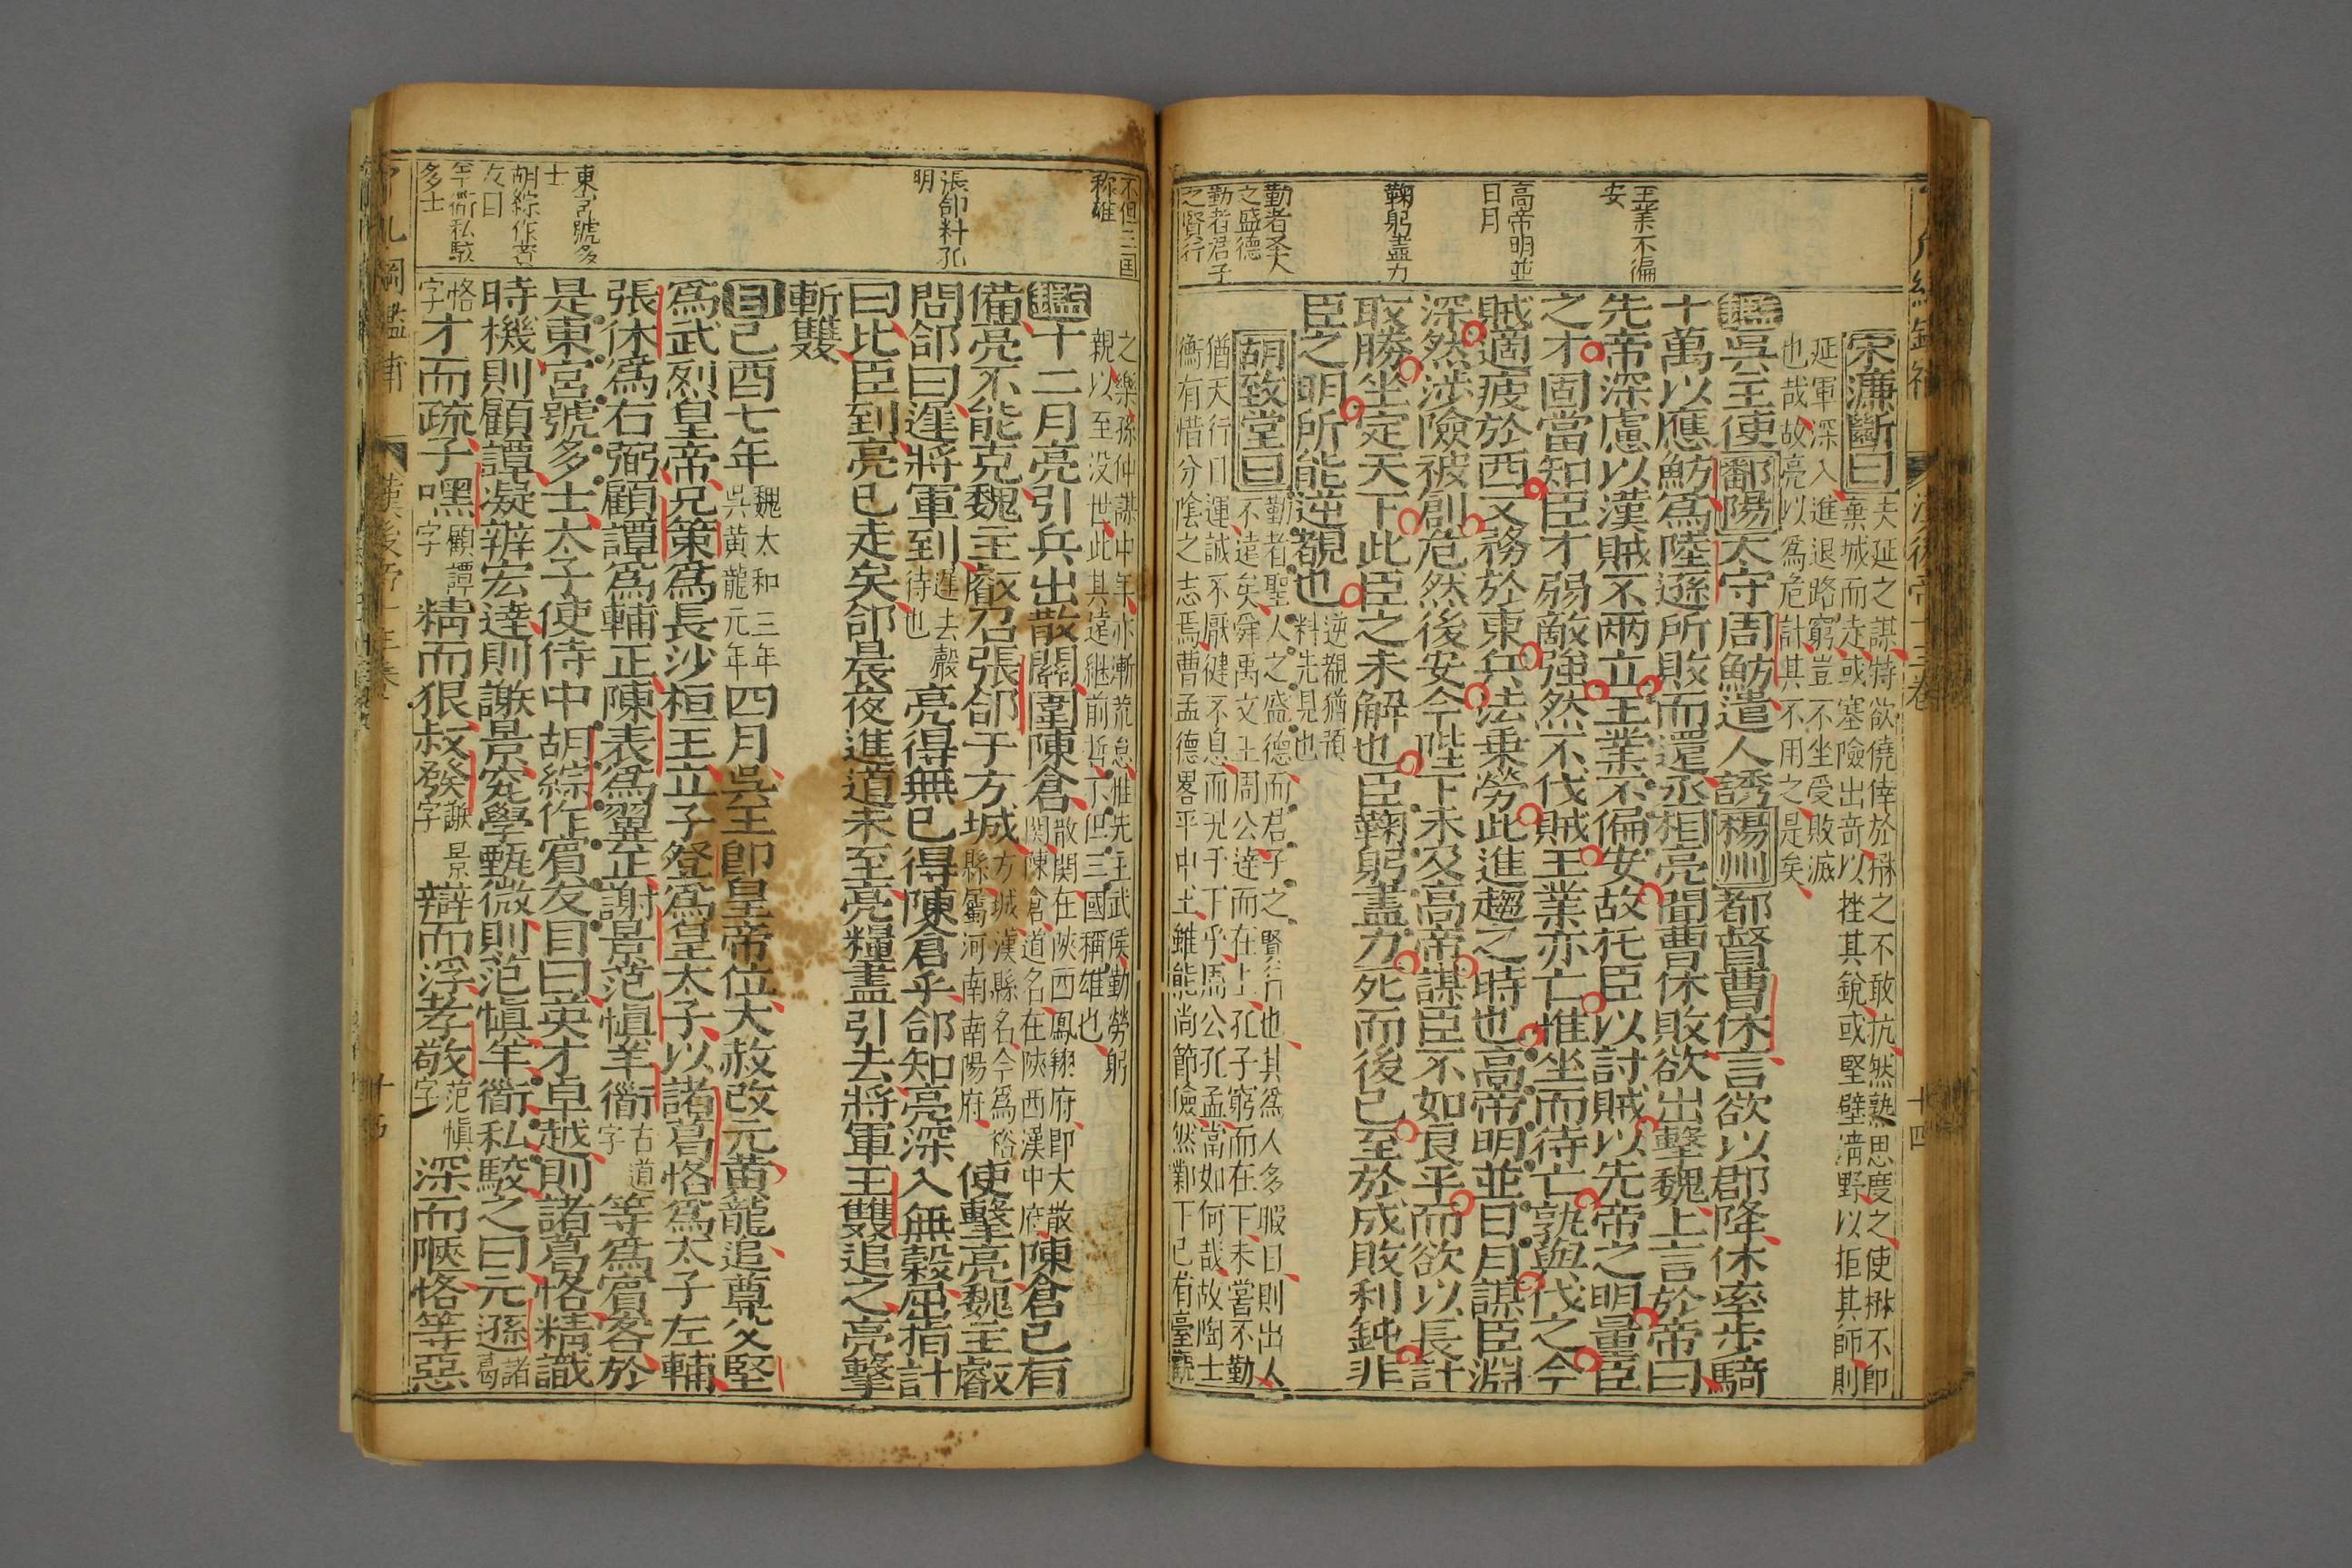 王業不徧
安
高帝明並
日月
鞠躬盡力
勤者圣人
之盛德
勤者君子
之賢行
宋濂斷曰
夫延之謀特欲僥倖於楙之不敢抗然熟思度之使楙不即
棄城而走或塞險出竒以挫其銳或堅壁凊野以拒其師則
延軍深入進退路窮豈不坐受敗滅
也哉故亮以爲危計其不用之是矣
鑑吳主使鄱陽太守周魴遣人誘楊州都督曹休言欲以郡降休率步騎
十萬以應魴爲陸遜所敗而還丞相亮聞曹休敗欲出擊魏上言於帝曰
先帝深慮以漢賊不兩立王業不偏安故托臣以討賊以先帝之明量臣
之才固當知臣才弱敵強然不伐賊王業亦亡惟坐而待亡孰與伐之今
賊適疲於西又務於東兵法乗勞此進趨之時也高帝明並日月謀臣淵
深然涉險被創危然後安今陛下未及高帝謀臣不如良平而欲以長計
取勝坐定天下此臣之未解也臣鞠躬盡力死而後已至於成敗利鈍非
臣之明所能逆覩也
逆覩猶預
料先見也
胡致堂曰
勤者聖人之盛德而君子之賢行也其爲人多暇日則出人
不遠矣舜禹文王周公達而在上孔子窮而在下未嘗不勤
猶天行日運誠不厭健不息而尤于丁乎禹公孔孟當如何哉故陶士
衡有惜分陰之志焉曹孟德畧平中土雖能尚節儉然鄴下已有臺觀
漢後帝十三卷
十四
不但三国
称雄
張郃料孔
明
東宮號多
士
胡綜作賔
友目
羊衜私駁
多士
之樂孫仲謀中年亦漸荒怠惟先主武侯勤勞躬
親以至没世此其達継前哲不但三國稱雄也
鑑十二月亮引兵出散關圍陳倉
散関在陝西鳳翔府即大散
関陳倉道名在陝西漢中府
陳倉已有
備亮不能克魏主叡召張郃于方城
方城漢縣名今爲裕
縣屬河南南陽府
使擊亮魏主叡
問郃曰遅將軍到
遅去聲
待也
亮得無已得陳倉乎郃知亮深入無穀屈指計
曰比臣到亮已走矣郃晨夜進道未至亮糧盡引去將軍王雙追之亮擊
斬雙
目己酉七年
魏太和三年
吳黄龍元年
四月吳王即皇帝位大赦改元黄龍追尊父堅
爲武烈皇帝兄策爲長沙桓王立子登爲皇太子以諸葛恪爲太子左輔
張休爲右弼顧譚爲輔正陳表爲翼正謝景范愼羊衜
古道
字
等爲賔客於
是東宮號多士太子使侍中胡綜作賔友目曰英才卓越則諸葛恪精識
時機則顧譚凝辨宏達則謝景究學甄微則范愼羊衜私駁之曰元遜
諸葛
恪
字
才而疏子嘿
顧譚
字
精而狠叔發
謝景
字
辯而浮孝敬
范愼
字
深而陿恪等惡
漢後帝十三卷
十五